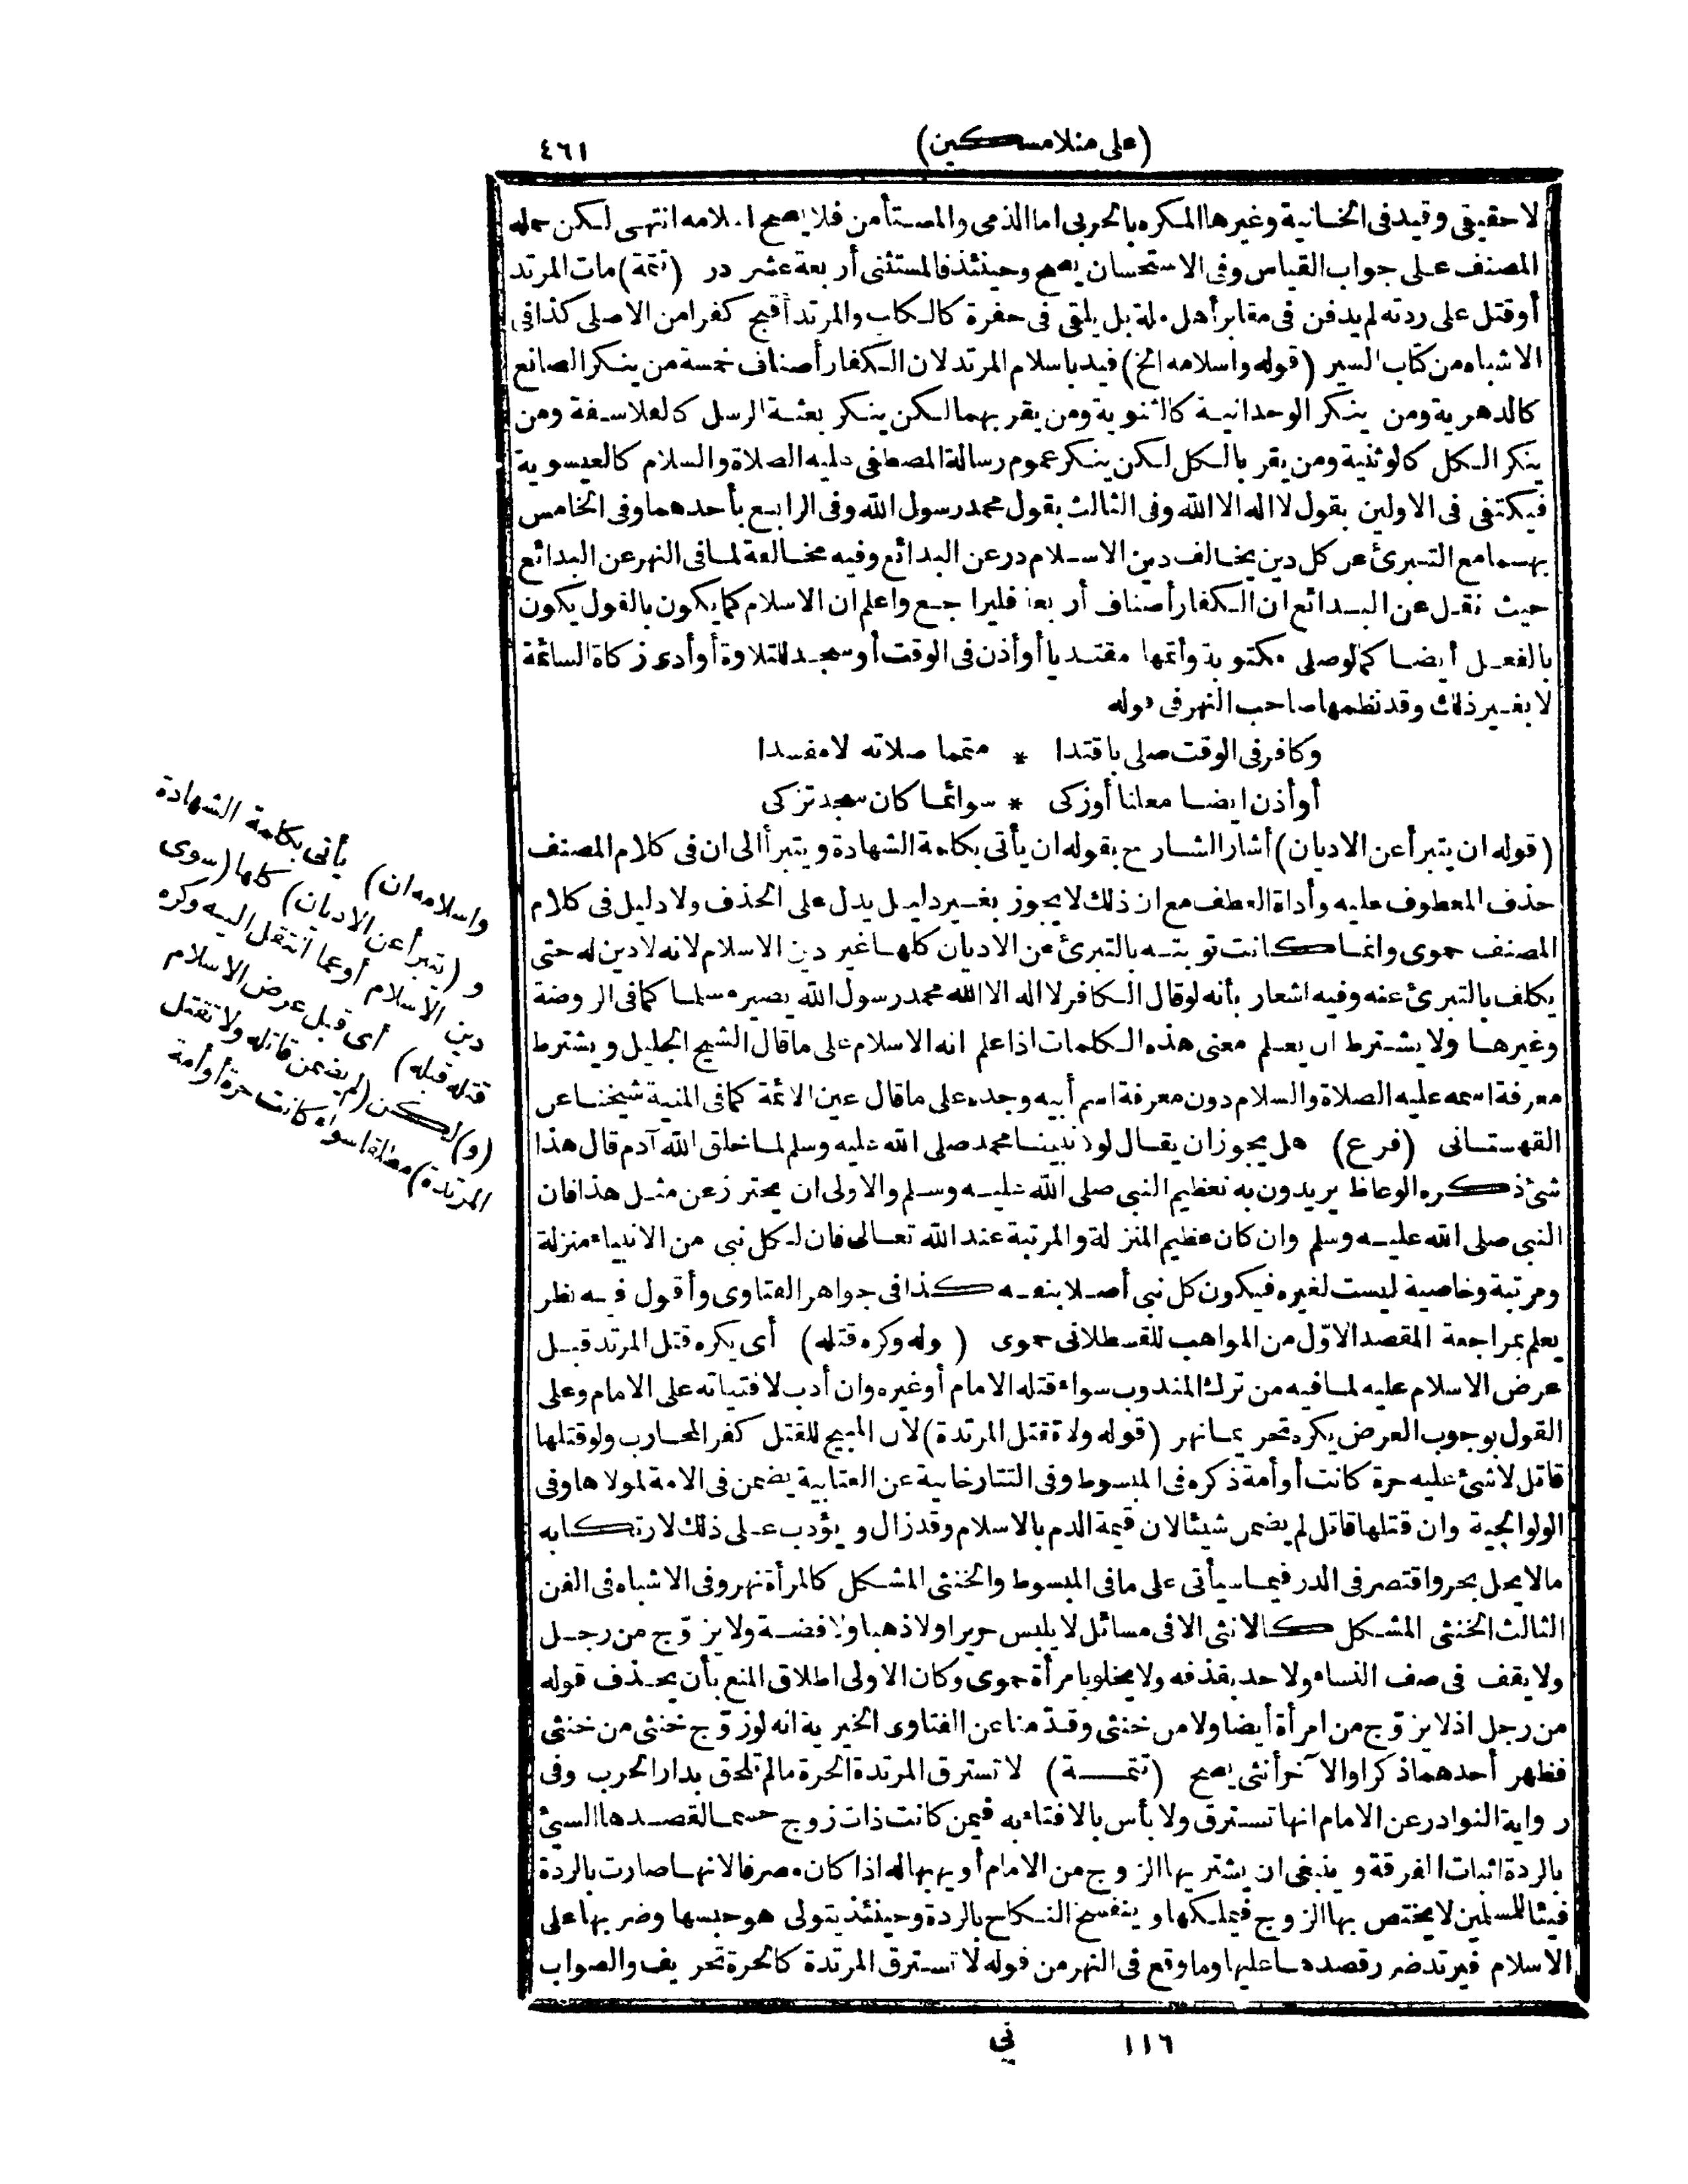 (على منلا مسكين)
٤٦١
لا حقيقى وقيد فى الخانية وغيرها المكره بالحربى اما الذمى والمستأمن فلا يصح اسلامه انتهى لكن حمله
المصنف على جواب القياس وفى الاستحسان يصح وحينئذ فالمستثنى أربعة عشر در (تتمة) مات المرتد
أو قتل على ردته لم يدفن فى مقابر أهل ملة بل يلقى فى حفرة كالكلب والمرتد أقبح كفرا من الاصلى كذا فى
الاشباه من كتاب السير (قوله واسلامه الخ) قيد باسلام المرتد لان الكفار أصناف خمسة من ينكر الصانع
كالدهرية ومن ينكر الوحدانية كالثنوية ومن يقر بهما لكن ينكر بعثة الرسل كالفلاسفة ومن
ينكر الكل كالوثنية ومن يقر بالكل لكن ينكر عموم رسالة المصطفى عليه الصلاة والسلام كالعيسوية
فيكتفى فى الاولين بقول لا اله الا الله وفى الثالث بقول محمد رسول الله وفى الرابع بأحدهما وفى الخامس
بهما مع التبرئ عن كل دين يخالف دين الاسلام در عن البدائع وفيه مخالفة لما فى النهر عن البدائع
حيث نقل عن البدائع ان الكفار أصناف أربعة فليراجع واعلم ان الاسلام كما يكون بالقول يكون
بالفعل أيضا كما لو صلى مكتوبة وأتمها مقتديا أو أذن فى الوقت أو سجد للتلاوة أو أدى زكاة السائمة
لا بغير ذلك وقد نظمها صاحب النهر فى قوله
وكافر فى الوقت صلى باقتدا * متمما صلاته لا مفسدا
أو أذن ايضا معلنا أو زكى * سوائما كان سجد تزكى
(قوله ان يتبرأ عن الاديان) أشار الشارح بقوله ان يأتى بكلمة الشهادة ويتبرأ الى ان فى كلام المصنف
حذف المعطوف عليه وأداة العطف مع ان ذلك لا يجوز بغير دليل يدل على الحذف ولا دليل فى كلام
المصنف حموى وانما كانت توبته بالتبرئ عن الاديان كلها غير دين الاسلام لانه لا دين له حتى
يكلف بالتبرئ عنه وفيه اشعار بأنه لو قال الكافر لا اله الا الله محمد رسول الله يصير مسلما كما فى الروضة
وغيرها ولا يشترط ان يعلم معنى هذه الكلمات اذا علم انه الاسلام على ما قال الشيخ الجليل ويشترط
معرفة اسمه عليه الصلاة والسلام دون معرفة اسم أبيه وجده على ما قال عين الائمة كما فى المنية شيخنا عن
القهستانى (فرع) هل يجوز ان يقال لولا نبينا محمد صلى الله عليه وسلم لما خلق الله آدم قال هذا
شئ ذكره الوعاظ يريدون به تعظيم النبى صلى الله عليه وسلم والاولى ان يحترز عن مثل هذا فان
النبى صلى الله عليه وسلم وان كان عظيم المنزلة والمرتبة عند الله تعالى فان لكل نبى من الانبياء منزلة
ومرتبة وخاصية ليست لغيره فيكون كل نبى أصلا بنفسه كذا فى جواهر الفتاوى وأقول فيه نظر
يعلم بمراجعة المقصد الاوّل من المواهب للقسطلانى حموى (قوله وكره قتله) أى يكره قتل المرتد قبل
عرض الاسلام عليه لما فيه من ترك المندوب سواء قتله الامام أو غيره وان أدب لافتياته على الامام وعلى
القول بوجوب العرض يكره تحريما نهر (قوله ولا تقتل المرتدة) لان المبيح للقتل كفر المحارب ولو قتلها
قاتل لا شئ عليه حرة كانت أو أمة ذكره فى المبسوط وفى التتارخانية عن العتابية يضمن فى الامة لمولاها وفى
الولوالجية وان قتلها قاتل لم يضمن شيئا لان قيمة الدم بالاسلام وقد زال ويؤدب على ذلك لارتكابه
ما لا يحل بحر واقتصر فى الدر فيما سيأتى على ما فى المبسوط والخنثى المشكل كالمرأة نهر وفى الاشباه فى الفن
الثالث الخنثى المشكل كالانثى الا فى مسائل لا يلبس حريرا ولا ذهبا ولا فضة ولا يزوّج من رجل
ولا يقف فى صف النساء ولا حد بقذفه ولا يخلو بامرأة حموى وكان الاولى اطلاق المنع بأن يحذف قوله
من رجل اذ لا يزوّج من امرأة أيضا ولا من خنثى وقدّمنا عن الفتاوى الخيرية انه لو زوّج خنثى من خنثى
فظهر أحدهما ذكرا والآخر أنثى يصح (تتمة) لا تسترق المرتدة الحرة ما لم تلحق بدار الحرب وفى
رواية النوادر عن الامام انها تسترق ولا بأس بالافتاء به فيمن كانت ذات زوج حسما لقصدها السيئ
بالردة اثبات الفرقة وينبغى ان يشتريها الزوج من الامام أو يهبها له اذا كان مصرفا لانها صارت بالردة
فيئا للمسلمين لا يختص بها الزوج فيملكها وينفسخ النكاح بالردة وحينئذ يتولى هو حبسها وضربها على
الاسلام فيرتد ضرر قصدها عليها وما وقع فى النهر من قوله لا تسترق المرتدة كالحرة تحريف والصواب
١١٦
نى
واسلامه ان) يأتى بكلمة الشهادة
و (يتبرأ عن الاديان) كلها (سوى
دين الاسلام أو عما انتقل اليه وكره
قتله قبله) أى قبل عرض الاسلام
(و) لكن (لم يضمن قاتله ولا تقتل
المرتدة) مطلقا سواء كانت حرة أو أمة